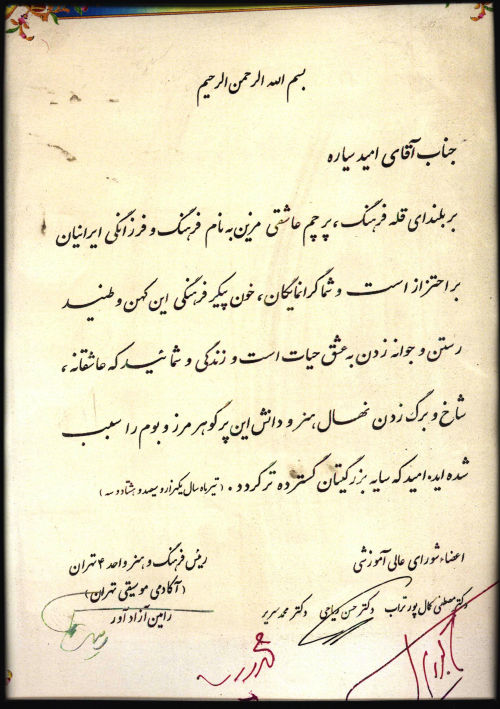 بسم الله الرحمن الرحیم
جناب آقای امید سیاره
بر بلندای قله فرهنگ، پرچم عاشقی مزین به نام فرهنگ و فرزانگی ایرانیان
بر احتزاز است و شما گرانمایگان، خون پیکر فرهنگی این کهن وطنید
رستن و جوانه زدن به عشق حیات است و زندگی و شمائید که عاشقانه،
شاخ و برگ زدن نهال هنر و دانش این پر گوهر مرز و بوم را سبب
شده اید. امید که سایه بزرگیتان گسترده تر گردد. (تیر ماه سال یکهزار و سیصد و هشتاد و سه)
اعضاء شورای عالی آموزشی
دکتر مصطفی کمال پورتراب دکتر حسن ریاحی دکتر محمد سریر
رئیس فرهنگ و هنر واحد ۴ تهران
(آکادمی موسیقی تهران)
رامین آزاد آور